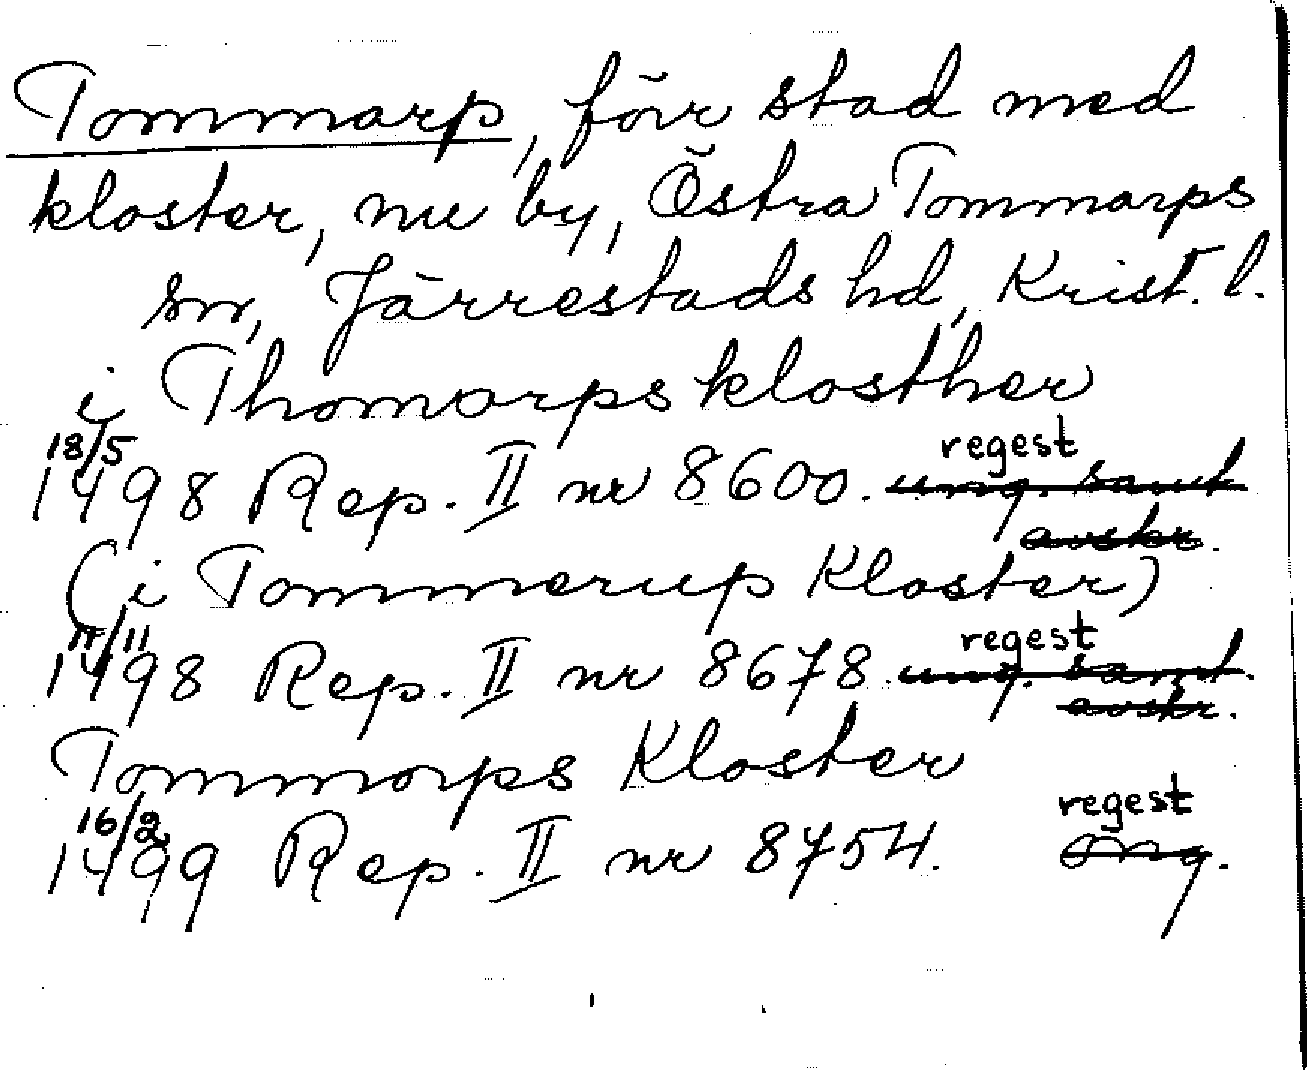 Tommarp, förr stad med
kloster, nu by, Östra Tommarps
sn, Järrestads hd, Krist. l.
i Thomorps klosther
18/5 regest
1498 Rep. II nr 8600. ung. samt
avskr.
(i Tommerup Kloster)
11/11 regest
1498 Rep. II nr 8678. ung. samt.
avskr.
Tommorps Kloster
16/2 regest
1499 Rep. II nr 8754. omg.